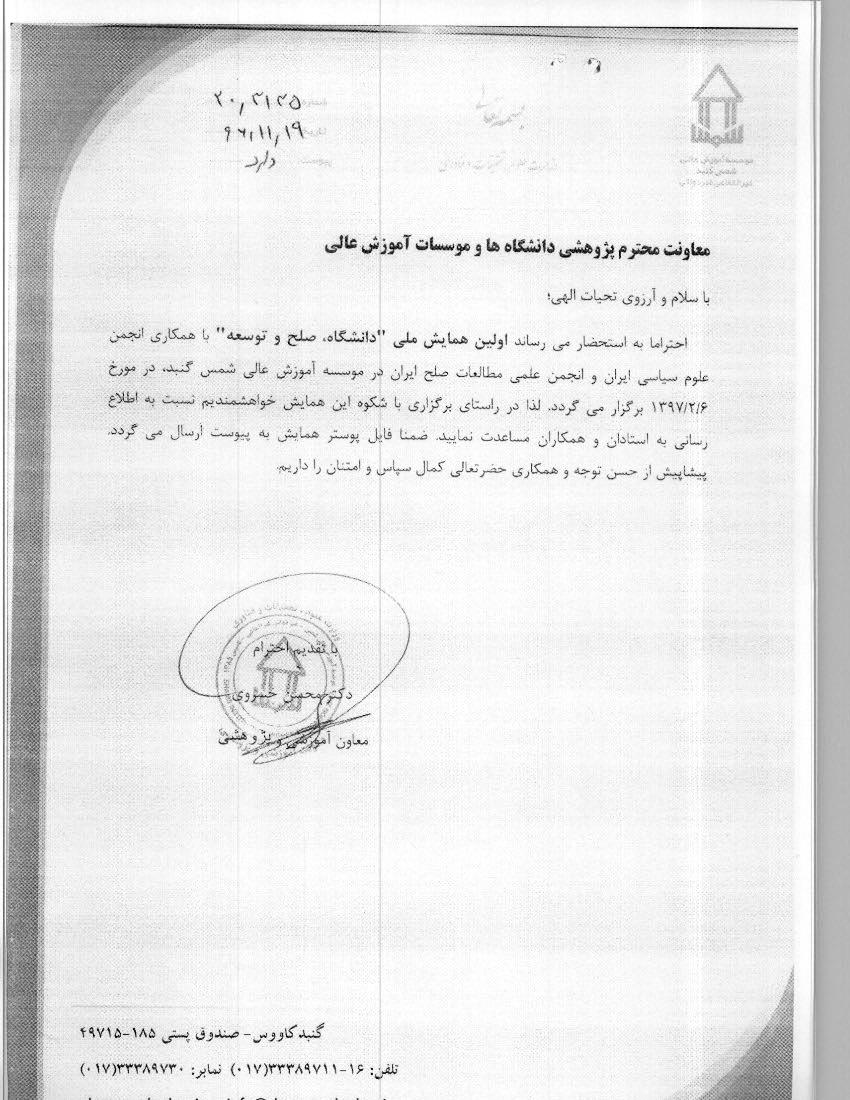 بسمه تعالی
شماره
تاریخ ۹۶،۱۱،۱۹
پیوست دارد
وزارت علوم، تحقیقات و فناوری
شمس
موسسه آموزش عالی
شمس گنبد
غیرانتفاعی غیردولتی
معاونت محترم پژوهشی دانشگاه ها و موسسات آموزش عالی
با سلام و آرزوی تحیات الهی؛
احتراما به استحضار می رساند اولین همایش ملی "دانشگاه، صلح و توسعه" با همکاری انجمن
علوم سیاسی ایران و انجمن علمی مطالعات صلح ایران در موسسه آموزش عالی شمس گنبد، در مورخ
۱۳۹۷/۲/۶ برگزار می گردد. لذا در راستای برگزاری با شکوه این همایش خواهشمندیم نسبت به اطلاع
رسانی به استادان و همکاران مساعدت نمایید. ضمنا فایل پوستر همایش به پیوست ارسال می گردد.
پیشاپیش از حسن توجه و همکاری حضرتعالی کمال سپاس و امتنان را داریم.
با تقدیم احترام
دکتر محسن خسروی
معاون آموزشی و پژوهشی
گنبدکاووس- صندوق پستی ۱۸۵-۴۹۷۱۵
تلفن: ۱۶-۳۳۳۸۹۷۱۱(۰۱۷) نمابر: ۳۳۳۸۹۷۳۰(۰۱۷)